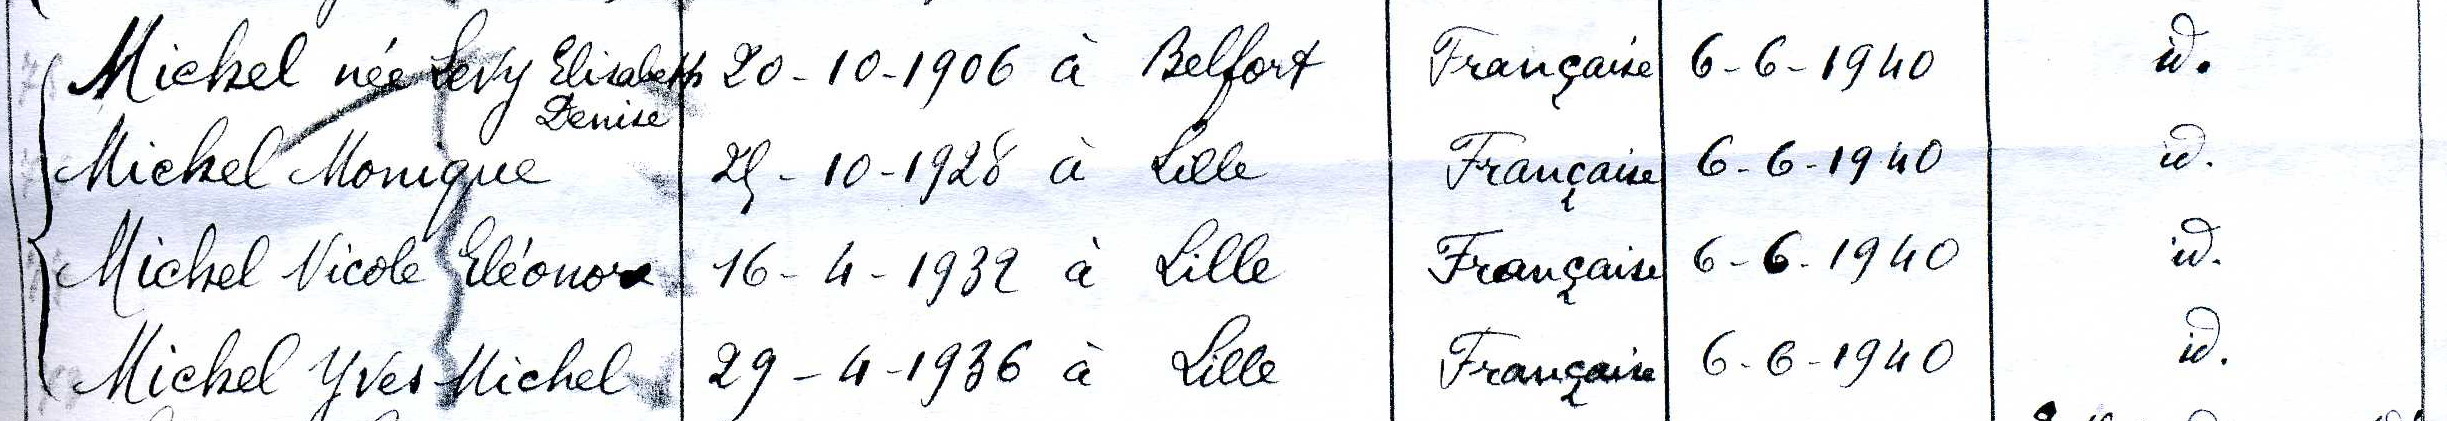 Michel née Levy Elisabeth 20-10-1906 à Belfort Française 6-6-1940 id.
Denise
Michel Monique 25-10-1928 à Lille Française 6-6-1940 id.
Michel Nicole Eléonore 16-4-1932 à Lille Française 6-6-1940 id.
Michel Yves Michel 29-4-1936 à Lille Française 6-6-1940 id.